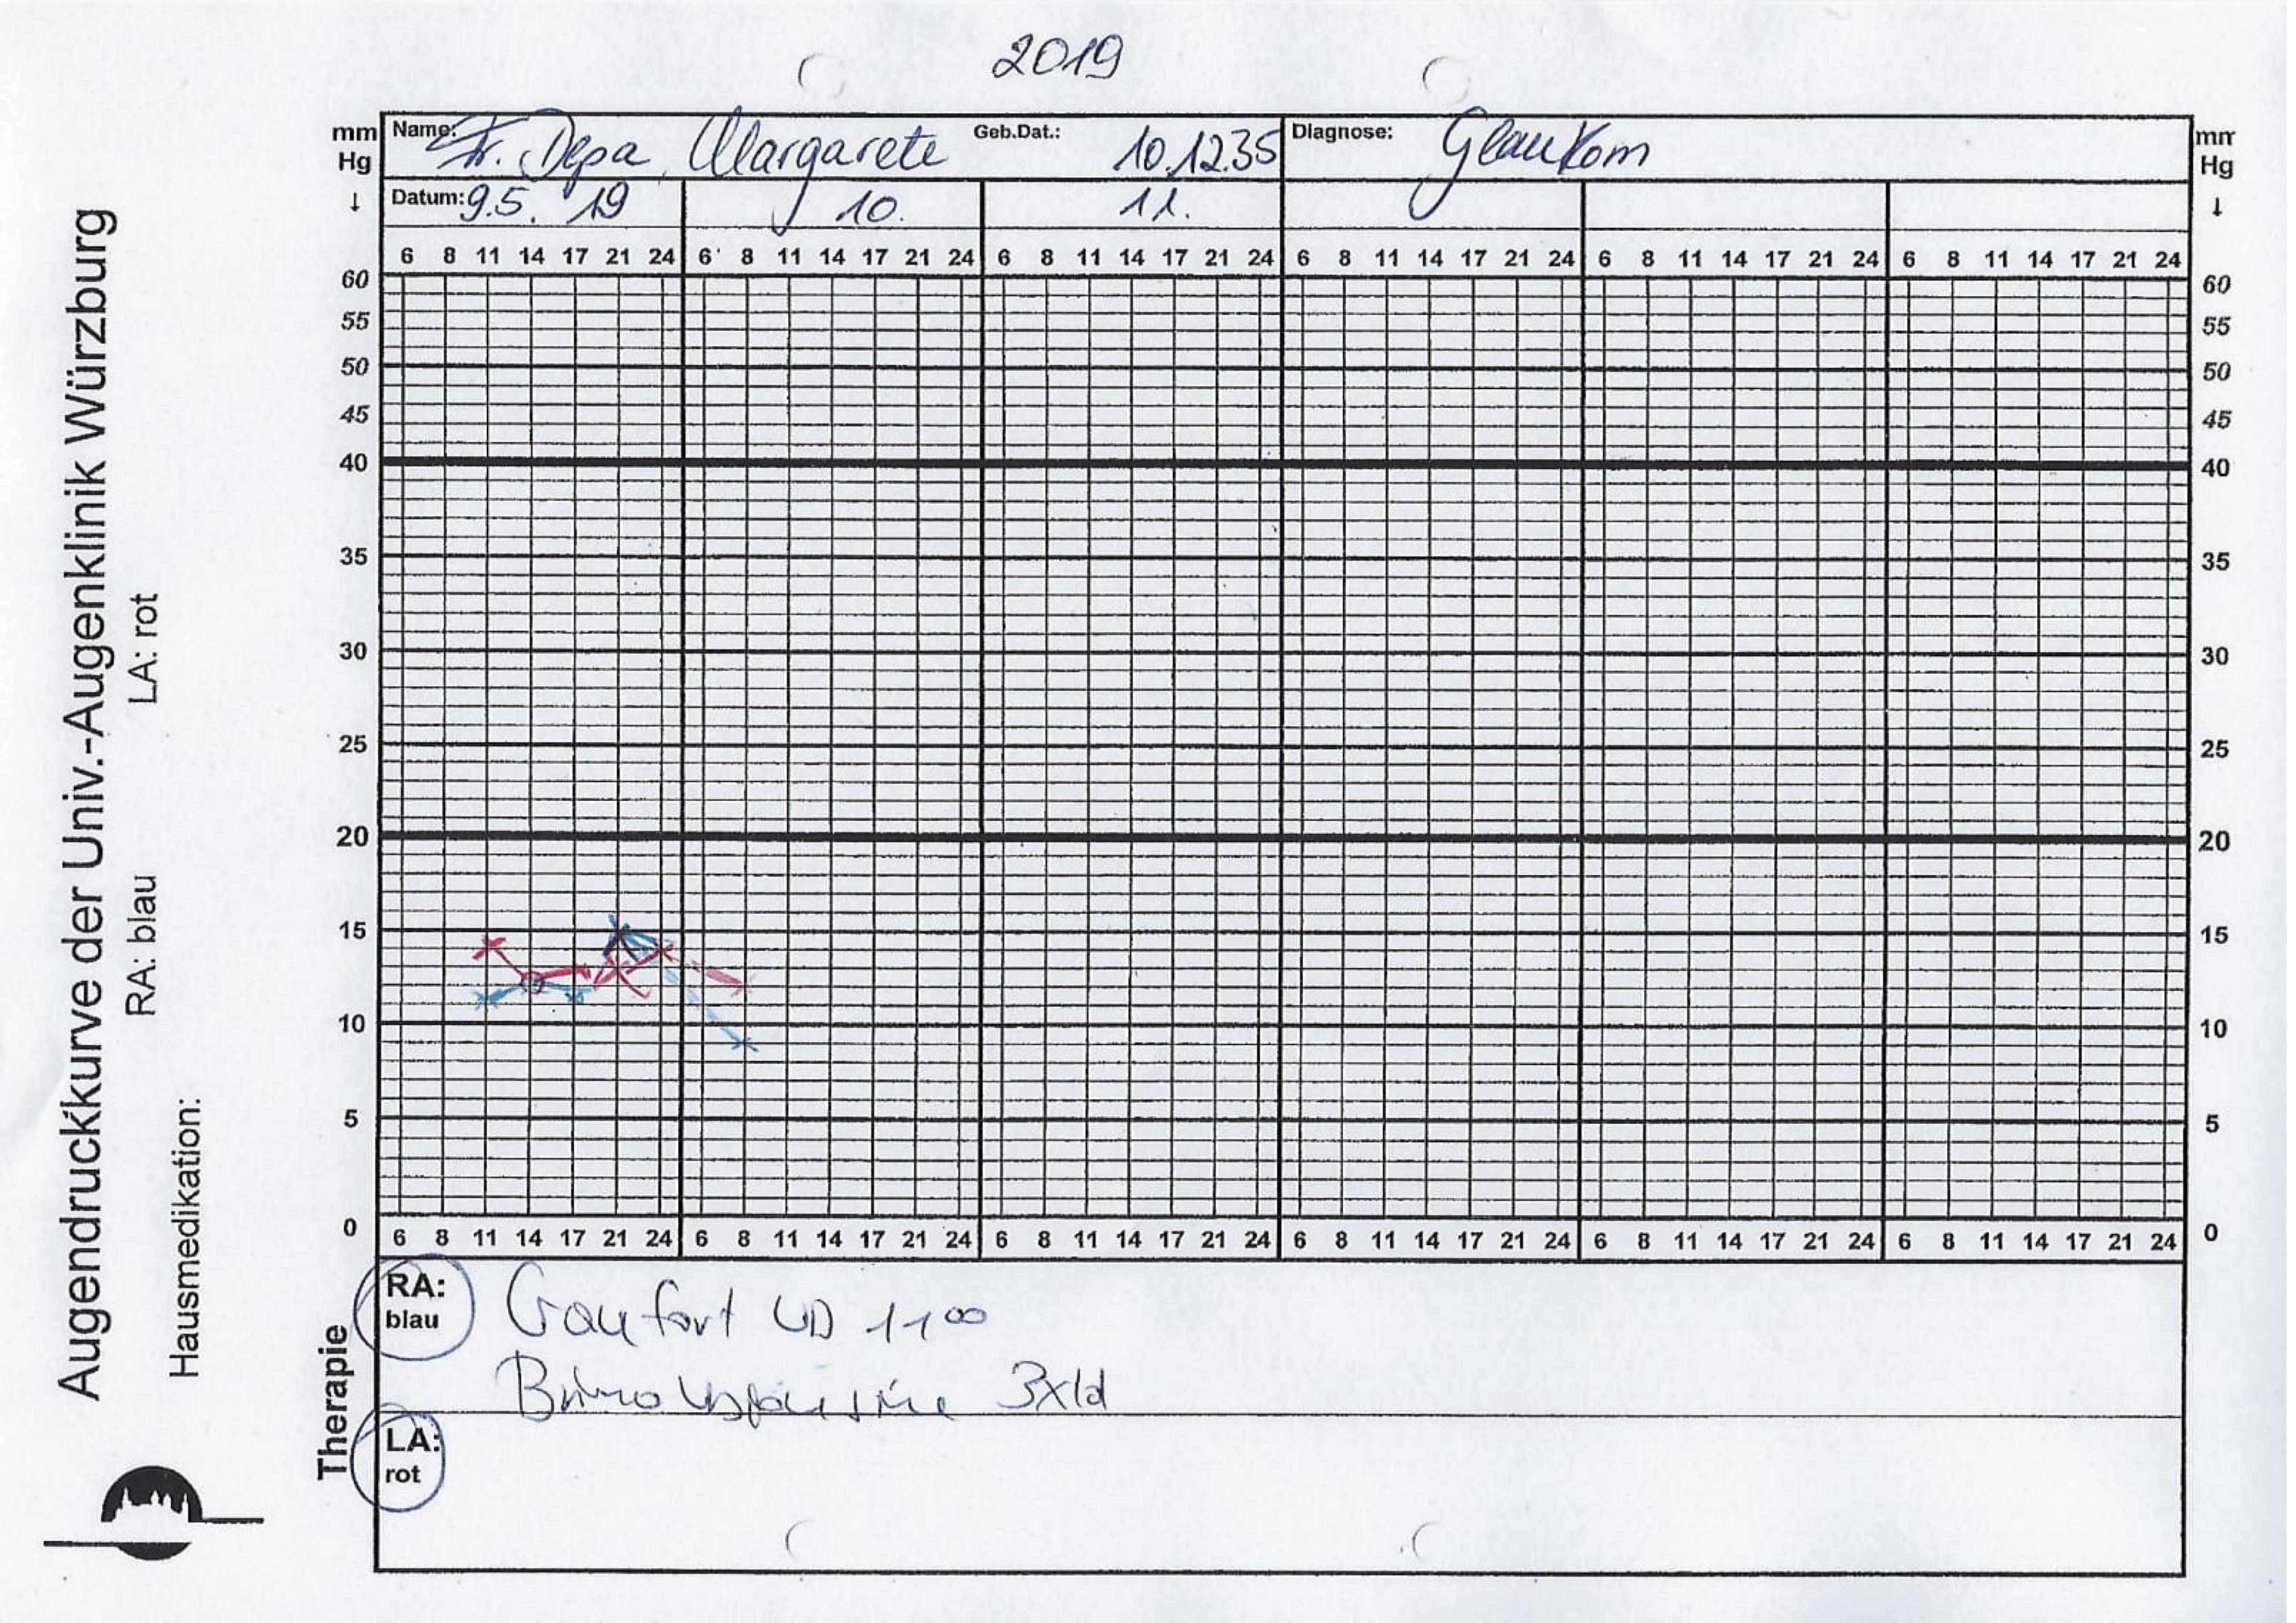 2019
Augendruckkurve der Univ.-Augenklinik Würzburg
RA: blau LA: rot
Hausmedikation:
mm Hg ↓
Name: Fr. Depa, Margarete Geb.Dat.: 10.12.35 Diagnose: Glaukom
mm Hg ↓
Datum: 9.5. 19 10. 11.
6 8 11 14 17 21 24 6 8 11 14 17 21 24 6 8 11 14 17 21 24 6 8 11 14 17 21 24 6 8 11 14 17 21 24 6 8 11 14 17 21 24
60 60
55 55
50 50
45 45
40 40
35 35
30 30
25 25
20 20
15 15
10 10
5 5
0 0
6 8 11 14 17 21 24 6 8 11 14 17 21 24 6 8 11 14 17 21 24 6 8 11 14 17 21 24 6 8 11 14 17 21 24 6 8 11 14 17 21 24
Therapie
RA:
blau
11 00
3x/d
LA:
rot